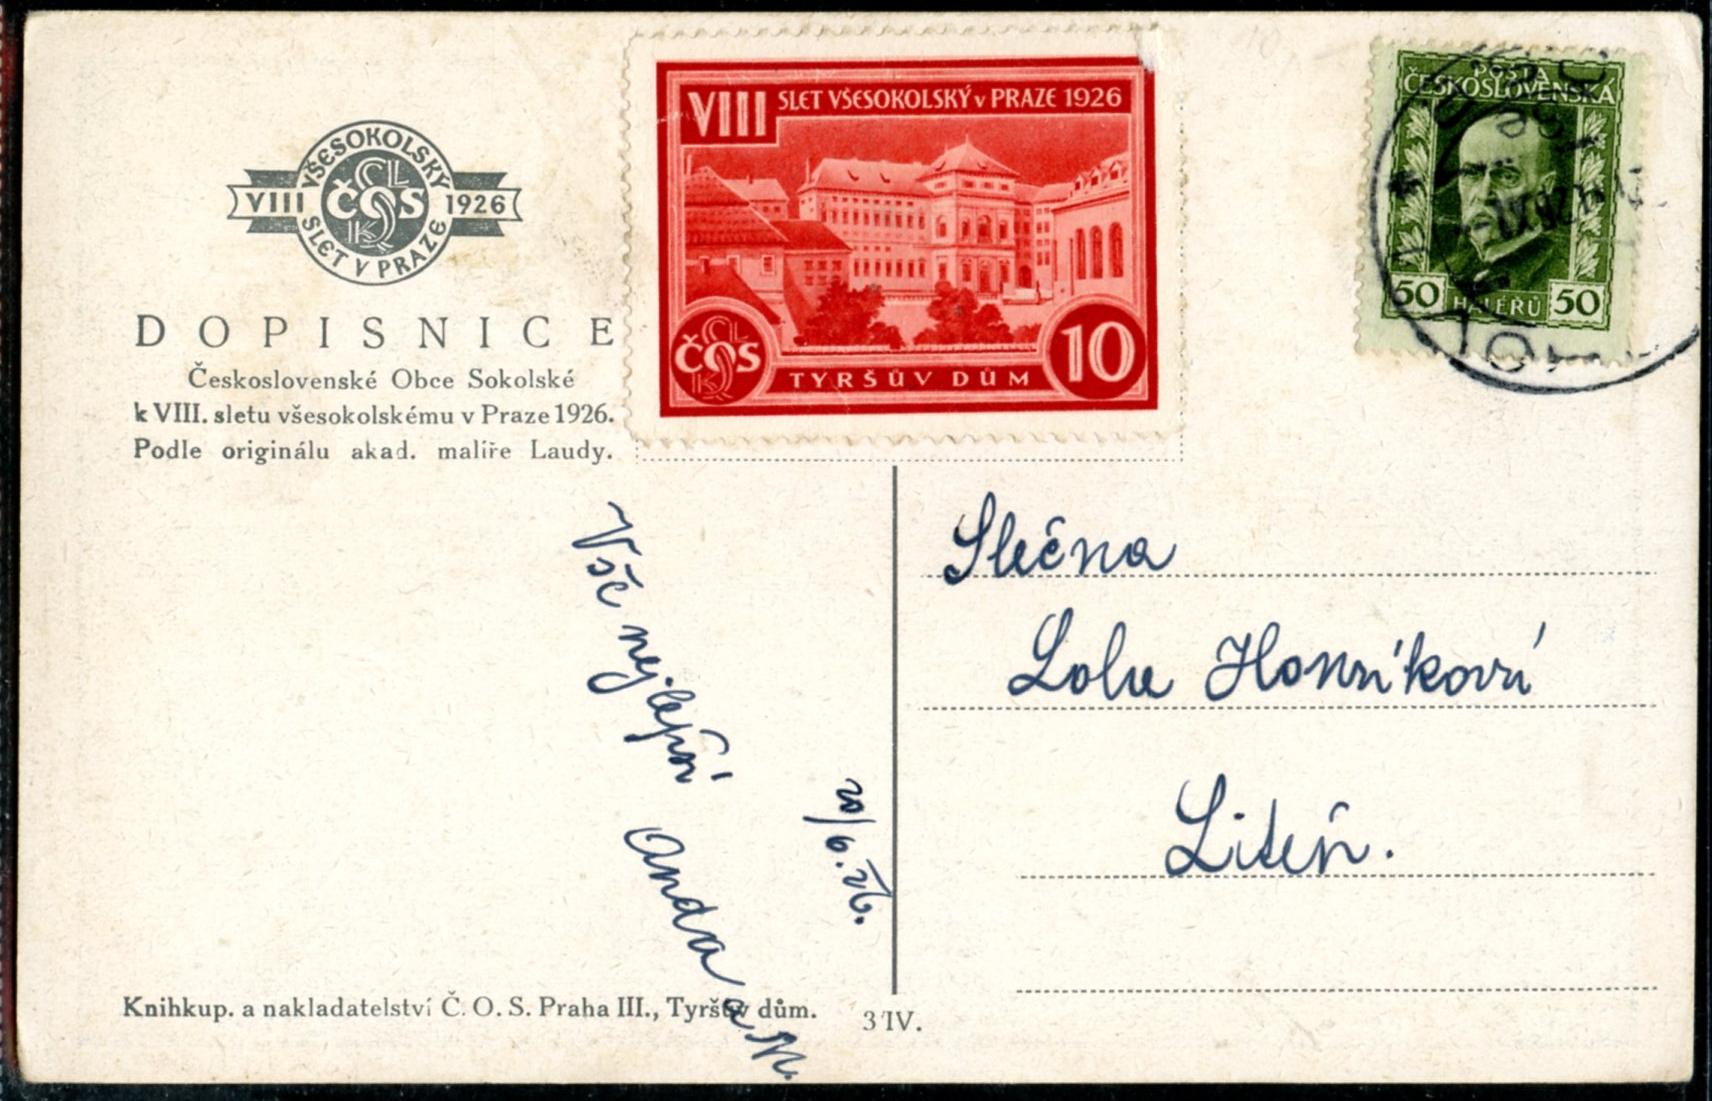 VIII VŠESOKOLSKÝ 1926
ČOS
SLET V PRAZE
DOPISNICE
Československé Obce Sokolské
k VIII. sletu všesokolskému v Praze 1926.
Podle originálu akad. malíře Laudy.
VIII SLET VŠESOKOLSKÝ v PRAZE 1926
ČOS
TYRŠŮV DŮM
10
POŠTA
ČESKOSLOVENSKÁ
50 HALÉŘŮ 50
Vše nejlepší
Anda a
20/6. 26.
Slečna
Liteň.
Knihkup. a nakladatelství Č. O. S. Praha III., Tyršův dům.
3 IV.